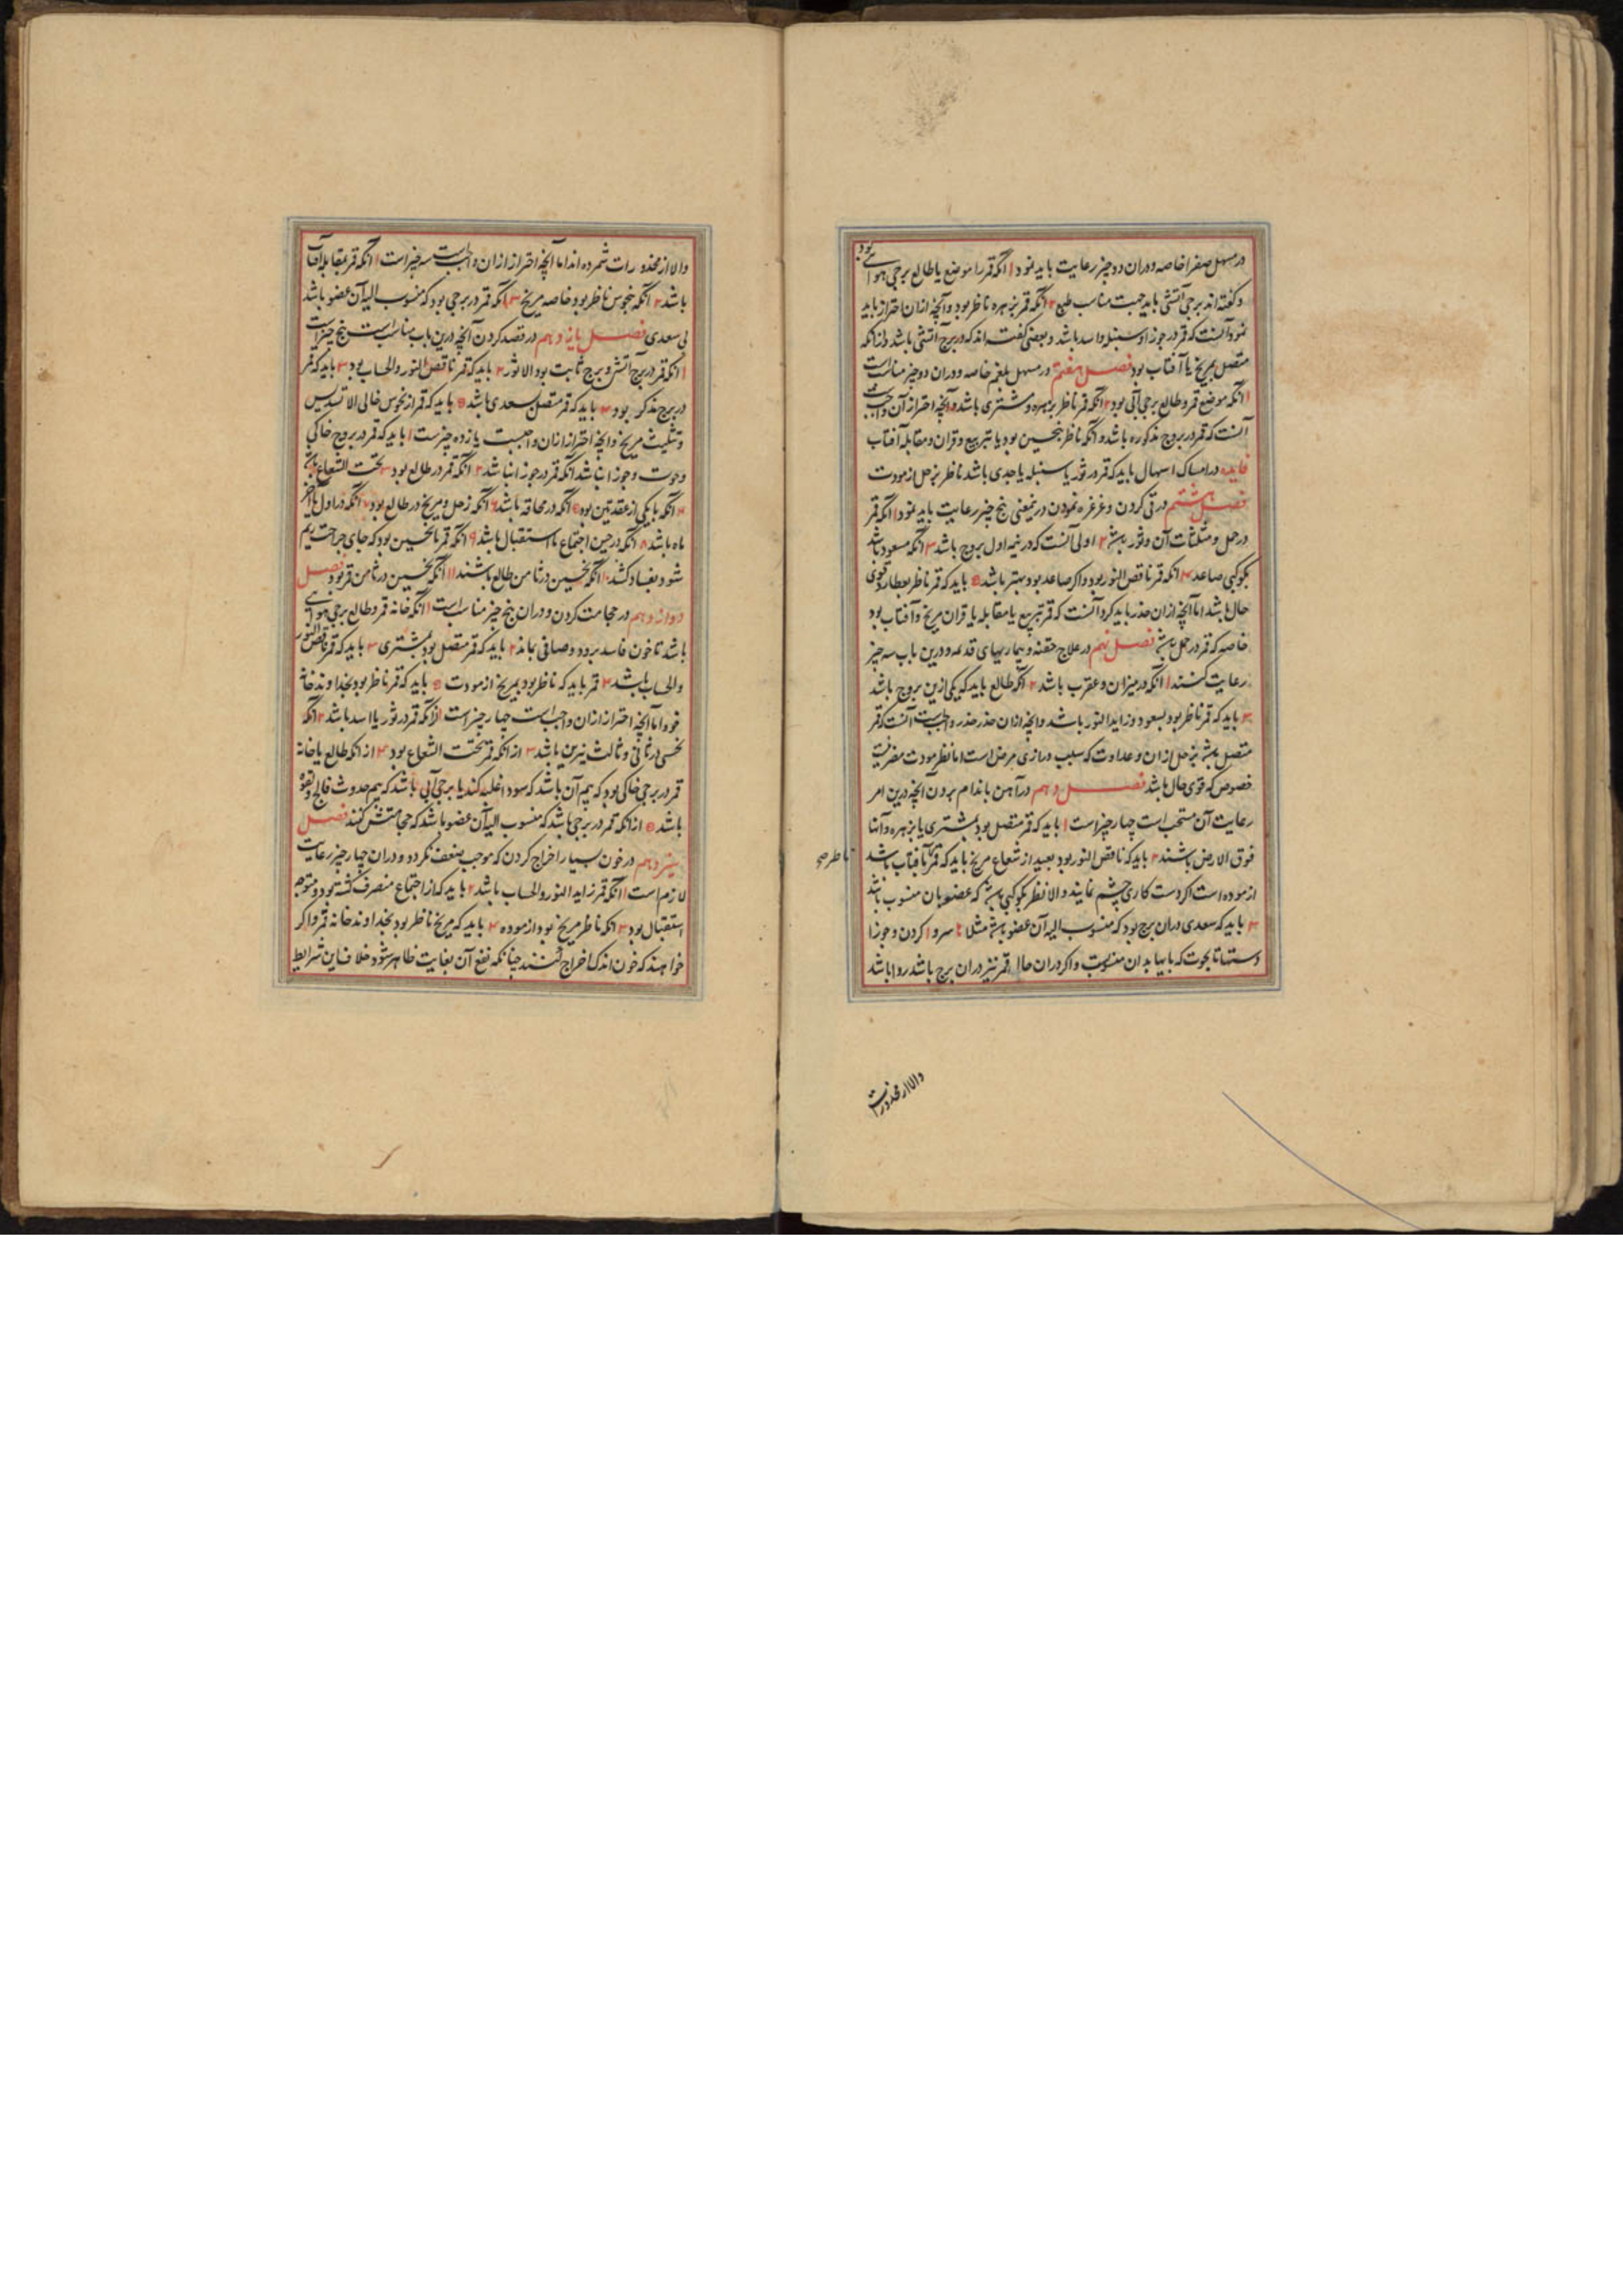 در مسهل صفرا خاصه و دران دو چیز رعایت باید نمود ۱ آنکه قمر را موضع یا طالع برجی هوائی بود
و گفته اند برجی آتشی باید جهت مناسب طبع ۲ آنکه قمر بزهره ناظر بود و آنچه ازان احتراز باید
نمود آنست که قمر در جوزا و سنبله و اسد باشد و بعضی گفته اند که در برج آتشی باشد و آنکه
متصل بمریخ یا آفتاب بود فصل هفتم در مسهل بلغم خاصه و دران دو چیز مناسبست
۱ آنکه موضع قمر و طالع برجی آبی بود ۲ آنکه قمر ناظر بزهره و مشتری باشد و آنچه احتراز آن واجبست
آنست که قمر در بروج مذکوره باشد و آنکه ناظر بنحسین بود یا تربیع و قران و مقابله آفتاب
فایده در امساک اسهال باید که قمر در ثور یا سنبله یا جدی باشد ناظر بزحل از مودت
فصل هشتم در قی کردن و غرغره نمودن درینمعنی پنج چیز رعایت باید نمود ۱ آنکه قمر
در حمل و مثلثات آن و ثور باشد ۲ اولی آنست که در نیمه اول بروج باشد ۳ آنکه مسعود باشد
بکوکبی صاعد ۴ آنکه قمر ناقص النور بود و اگر صاعد بود بهتر باشد ۵ باید که قمر ناظر بعطارد قوی
حال باشد اما آنچه ازان حذر باید کرد آنست که قمر تربیع یا مقابله یا قران مریخ و آفتاب بود
خاصه که قمر در حمل باشد فصل نهم در علاج حقنه و بیماریهای قدیمه و درین باب سه چیز
رعایت کنند ۱ آنکه در میزان و عقرب باشد ۲ آنکه طالع باید که یکی ازین بروج باشد
۳ باید که قمر ناظر بود بسعود و زاید النور باشد و آنچه ازان حذر واجبست آنست که قمر
متصل باشد بزحل ازان وعداوت که سبب درازی مرض است اما نظر مودت مضر نیست
خصوص که قوی حال باشد فصل دهم در آهن باندام بردن آنچه درین امر
رعایت آن مستحب است چهار چیز است ۱ باید که قمر متصل بود بمشتری یا بزهره و آنها
فوق الارض باشند ۲ باید که ناقص النور بود بعید از شعاع مریخ باید که قمر بآفتاب باشد
ناظر صح
از موده است اگر دست کاری چشم نمایند و الا نظر بکوکبی باشد که عضو بان منسوب باشد
۳ باید که سعدی دران برج بود که منسوب الیه آن عضو باشد مثلا سر و کردن و جوزا
دستها تا بحوت که پایها بدان منسوبست و اگر دران حال قمر نیز دران برج باشد روا باشد
والا از محذورات
والا از محذورات شمرده اند اما آنچه احتراز ازان واجبست سه چیز است ۱ آنکه قمر بمقابله آفتاب
باشد ۲ آنکه بنحوس ناظر بود خاصه مریخ ۳ آنکه قمر در برجی بود که منسوب الیه آن عضو باشد
بی سعدی فصل یازدهم در فصد کردن آنچه درین باب مناسب است پنج چیز است
۱ آنکه قمر در برج آتش و برج ثابت بود الا ثور ۲ باید که قمر ناقص النور و الحساب بود ۳ باید که قمر
در برج مذکر بود ۴ باید که قمر متصل بسعدی باشد ۵ باید که قمر از نحوس خالی الا تسدیس
و تثلیث مریخ و آنچه احتراز ازان واجبست یازده چیزست ۱ باید که قمر در بروج خاکی
و حوت و جوزا نباشد آنکه قمر در جوزا نباشد ۲ آنکه قمر در طالع بود ۳ تحت الشعاع باشد
۴ آنکه با یکی از عقدتین بود ۵ آنکه در محاقه باشد ۶ آنکه زحل و مریخ در طالع بود ۷ آنکه در اول یا آخر
ماه باشد ۸ آنکه در حین اجتماع یا استقبال باشد ۹ آنکه قمر بنحسین بود که جای جراحت ریم
شود و بفساد کشد ۱۰ آنکه نحسین در ثامن طالع باشند ۱۱ آنکه نحسین در ثامن قمر بود فصل
دوازدهم در حجامت کردن و دران پنج چیز مناسب است ۱ آنکه خانه قمر و طالع برجی هوائی
باشد تا خون فاسد برود و صافی بماند ۲ باید که قمر متصل بود بمشتری ۳ باید که قمر ناقص النور
و الحساب باشد ۴ قمر باید که ناظر بود بمریخ از مودت ۵ باید که قمر ناظر بود بخداوند خانه
خود اما آنچه احتراز ازان واجبست چهار چیز است ۱ از آنکه قمر در ثور یا اسد باشد ۲ آنکه
نحسی در ثانی و ثالث نیرین باشد ۳ از آنکه قمر تحت الشعاع بود ۴ از آنکه طالع یا خانه
قمر در برجی خاکی بود که بیم آن باشد که سودا غلبه کند یا برجی آبی باشد که بیم حدوث فالج و لقوه
باشد ۵ از آنکه قمر در برجی باشد که منسوب الیه آن عضو باشد که حجامتش کنند فصل
سیزدهم در خون بسیار اخراج کردن که موجب ضعف نگردد و دران چهار چیز رعایت
لازم است ۱ آنکه قمر زاید النور و الحساب باشد ۲ باید که از اجتماع منصرف گشته بود و متوجه
استقبال بود ۳ آنکه ناظر مریخ بود از موده ۴ باید که مریخ ناظر بود بخداوند خانه قمر و اگر
خواهند که خون اندک اخراج کنند چنانکه نفع آن بغایت ظاهر شود خلاف این شرایط